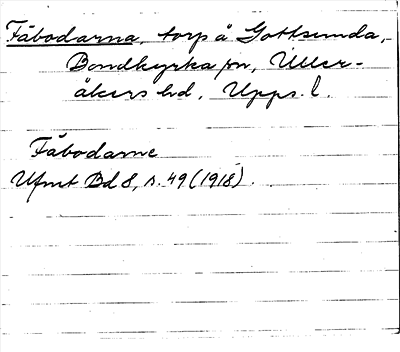 Fäbodarna, torp å Gottsunda,
Bondkyrka sn, Uller-
åkers hd, Upps. l.
Fäbodarne
Ufmt Bd 8, s. 49 (1918).